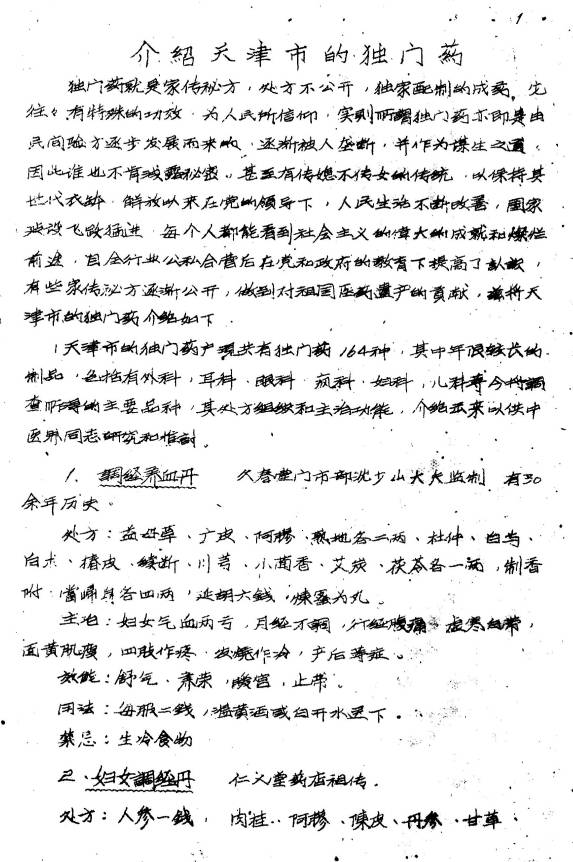 1
介紹天津市的独门药
独门药就是家传秘方，处方不公开，独家配制的成药，它
往々有特殊的功效，为人民所信仰，实则所謂独门药亦即是由
民间验方逐步发展而来的，逐渐被人垄断，并作为谋生之道，
因此谁也不肯洩露秘密。甚至有传媳不传女的传统，以保持其
世代衣鉢，解放以来在党的領导下，人民生活不断改善，国家
建设飞跃猛进，每个人都能看到社会主义的偉大的成就和燦烂
前途，自全行业公私合营后在党和政府的教育下提高了認識，
有些家传秘方逐渐公开，做到对祖国医药遺产的貢献，兹将天
津市的独门药介绍如下
天津市的独门药户現共有独门药164种，其中年限较长的
制品，包括有外科，耳科，眼科，疯科，妇科，儿科等今将調
查所得的主要品种，其处方组织和主治功能，介绍出来以供中
医界同志研究和
1．調经养血丹　　久春堂门市部沈少山大夫监制　有30
余年历史。
处方：益母草、广皮、阿膠、熟地各二两、杜仲、白芍、
白朮、椿皮、续断、川芎、小茴香、艾炭、茯苓各一两，制香
附、當歸身各四两，延胡六錢，煉蜜为丸。
主治：妇女气血两亏，月经不調，行经腹痛，虚寒白带，
面黄肌瘦，四肢作疼，发燒作冷，产后等症。
效能：舒气、养荣，暖宫，止带。
用法：每服二錢，温黄酒或白开水送下．
禁忌：生冷食物
2、妇女調经丹　　仁义堂药店祖传．
处方：人参一錢，肉桂、阿膠、陳皮、丹参、甘草、